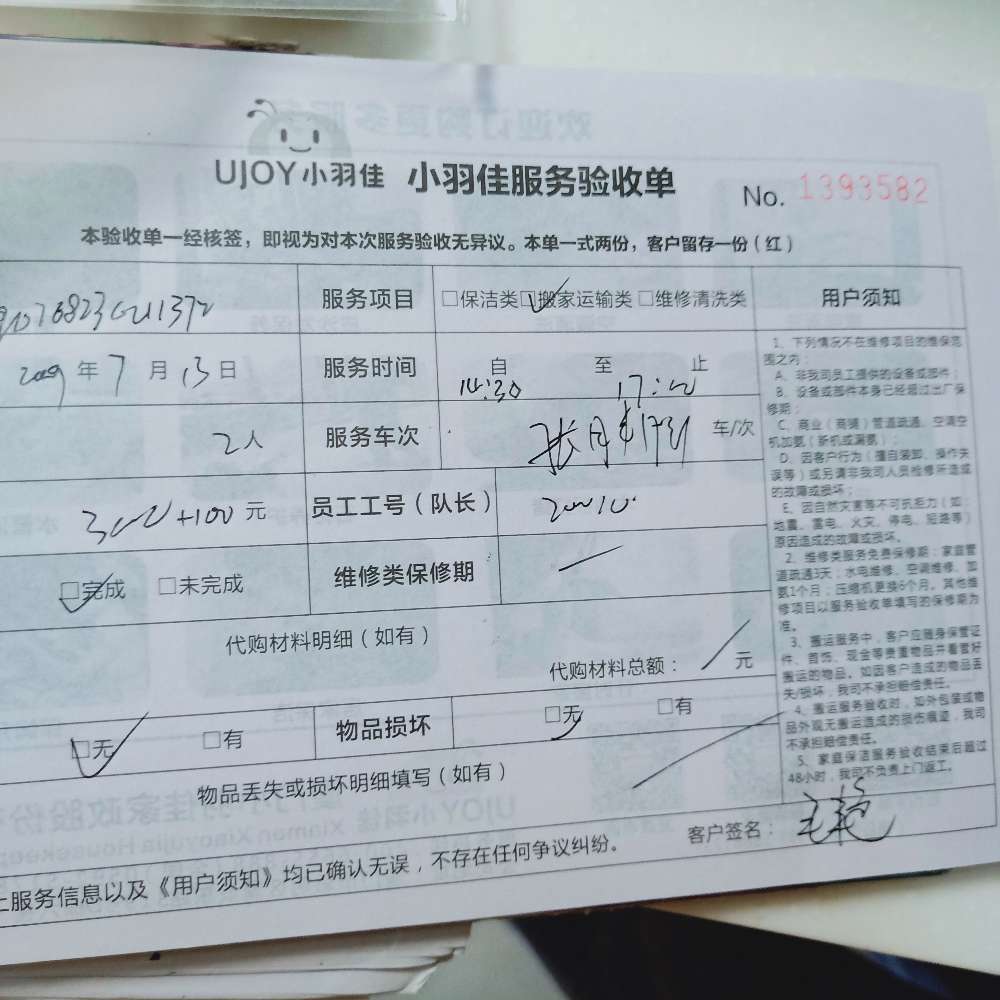 UJOY小羽佳 小羽佳服务验收单 No. 1393582
本验收单一经核签，即视为对本次服务验收无异议。本单一式两份，客户留存一份（红）
服务项目 □保洁类 □搬家运输类 □维修清洗类
年 7 月 13 日 服务时间 自 14:30 至 止
2人 服务车次 车/次
+100 元 员工工号（队长）
□完成 □未完成 维修类保修期
代购材料明细（如有）
代购材料总额： 元
□无 □有 物品损坏 □无 □有
物品丢失或损坏明细填写（如有）
客户签名：
上服务信息以及《用户须知》均已确认无误，不存在任何争议纠纷。
用户须知
1、下列情况不在维修项目的维保范
围之内：
A、非我司员工提供的设备或部件；
B、设备或部件本身已经超过出厂保
修期；
C、商业（商铺）管道疏通、空调空
机加氨（新机或漏氨）；
D、因客户行为（擅自装卸、操作失
误等）或另请非我司人员检修所造成
的故障或损坏；
E、因自然灾害等不可抗拒力（如：
地震、雷电、火灾、停电、短路等）
原因造成的故障或损坏。
2、维修类服务免费保修期：家庭管
道疏通3天；水电维修、空调维修、加
氨1个月；压缩机更换6个月。其他维
修项目以服务验收单填写的保修期为
准。
3、搬运服务中，客户应随身保管证
件、首饰、现金等贵重物品并看管好
搬运的物品。如因客户造成的物品丢
失/损坏，我司不承担赔偿责任。
4、搬运服务验收时，如外包装或物
品外观无搬运造成的损伤痕迹，我司
不承担赔偿责任。
5、家庭保洁服务验收结束后超过
48小时，我司不负责上门返工。